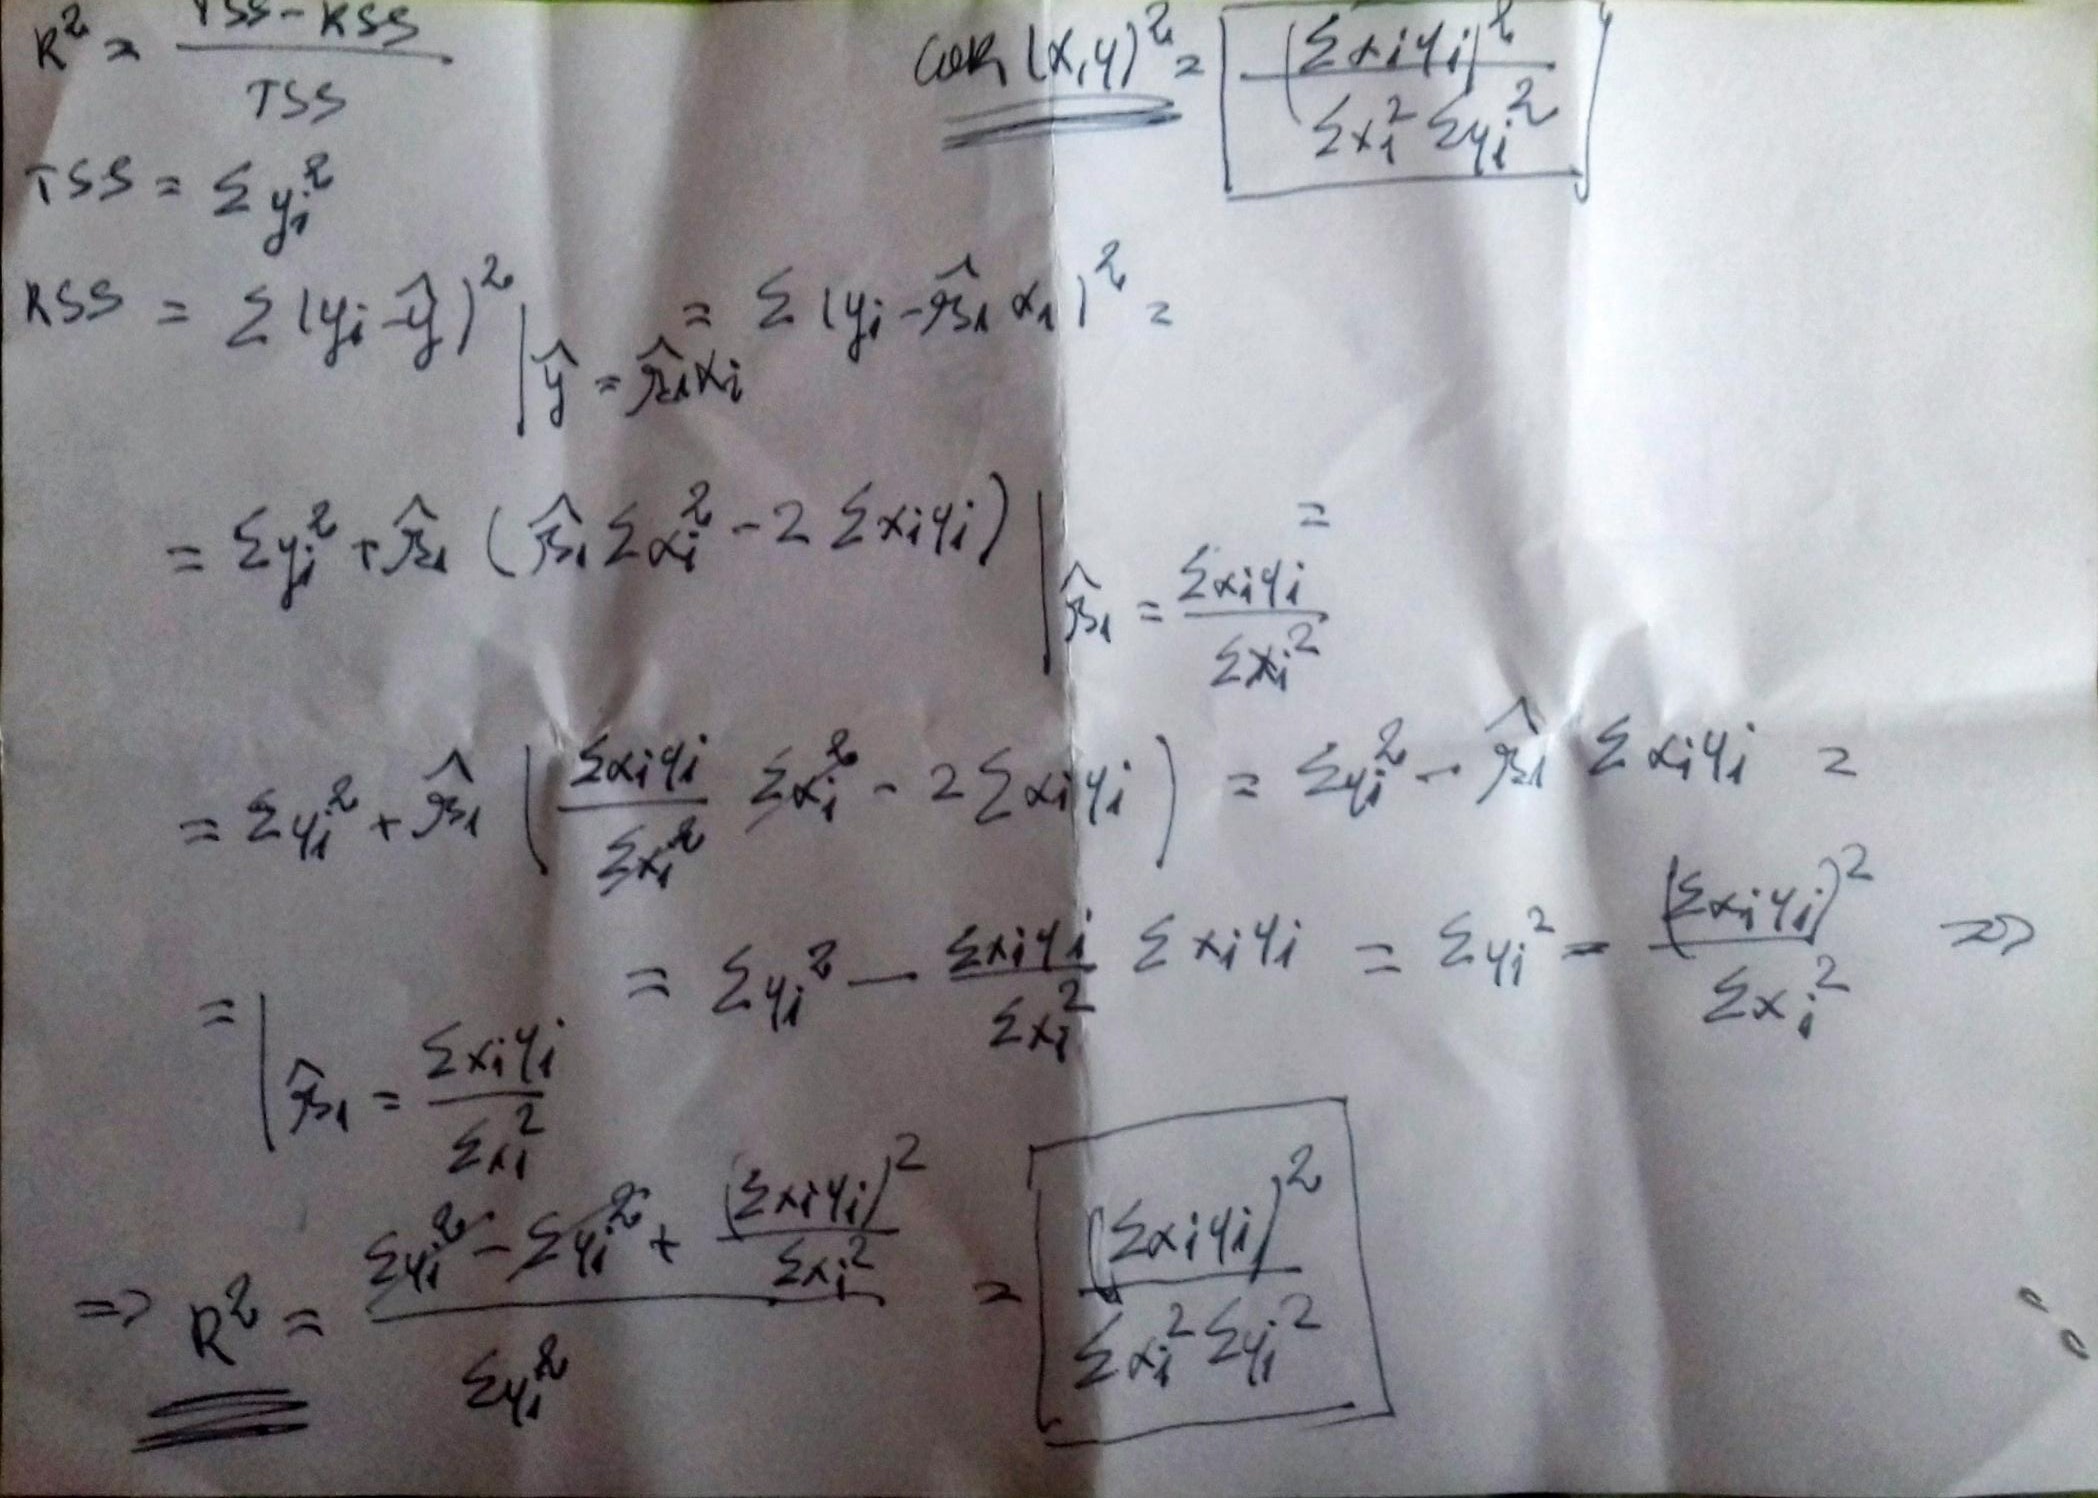 R² = (TSS - RSS) / TSS
COR (x,y)² = (Σxiyi)² / Σxi² Σyi²
TSS = Σyi²
RSS = Σ(yi - ŷ)² | ŷ = β̂1xi = Σ(yi - β̂1 xi)² =
= Σyi² + β̂1 (β̂1 Σxi² - 2 Σxiyi) | β̂1 = Σxiyi / Σxi² =
= Σyi² + β̂1 (Σxiyi / Σxi² Σxi² - 2Σxiyi) = Σyi² - β̂1 Σxiyi =
= | β̂1 = Σxiyi / Σxi² = Σyi² - Σxiyi / Σxi² Σxiyi = Σyi² - (Σxiyi)² / Σxi² =>
=> R² = (Σyi² - Σyi² + (Σxiyi)² / Σxi²) / Σyi² = (Σxiyi)² / Σxi² Σyi²